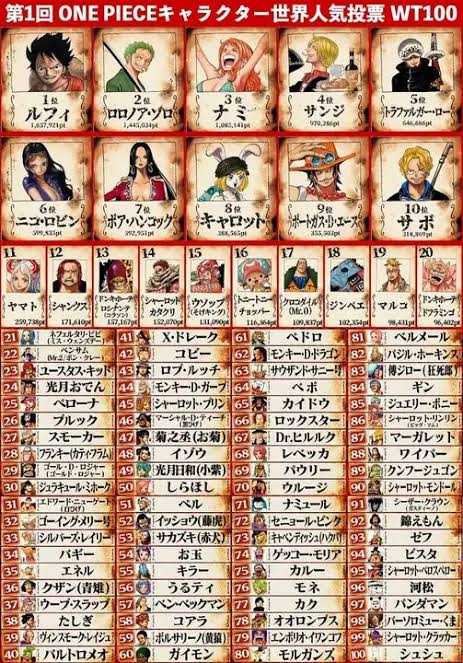 第1回 ONE PIECEキャラクター世界人気投票 WT100
1位
ルフィ
1,637,921pt
2位
ロロノア・ゾロ
1,445,034pt
3位
ナミ
1,083,141pt
4位
サンジ
970,286pt
5位
トラファルガー・ロー
646,686pt
6位
ニコ・ロビン
599,835pt
7位
ボア・ハンコック
392,951pt
8位
キャロット
388,565pt
9位
ポートガス・D・エース
355,503pt
10位
サボ
318,869pt
11
ヤマト
259,738pt
12
シャンクス
171,610pt
13
ドンキホーテ・ロシナンテ(コラソン)
157,167pt
14
シャーロット・カタクリ
152,070pt
15
ウソップ
(そげキング)
131,090pt
16
トニートニー・チョッパー
116,364pt
17
クロコダイル
(Mr.0)
109,837pt
18
ジンベエ
102,354pt
19
マルコ
98,431pt
20
ドンキホーテ・ドフラミンゴ
96,402pt
21 ネフェルタリ・ビビ(ミス・ウェンズデー)
22 ベンサム(Mr.2/ボン・クレー)
23 ユースタス・キッド
24 光月おでん
25 ペローナ
26 ブルック
27 スモーカー
28 フランキー(カティ・フラム)
29 ゴール・D・ロジャー(ゴールド・ロジャー)
30 ジュラキュール・ミホーク
31 エドワード・ニューゲート(白ひげ)
32 ゴーイング・メリー号
33 シルバーズ・レイリー
34 バギー
35 エネル
36 クザン(青雉)
37 ウープ・スラップ
38 たしぎ
39 ヴィンスモーク・レイジュ
40 バルトロメオ
41 X・ドレーク
42 コビー
43 ロブ・ルッチ
44 モンキー・D・ガープ
45 シャーロット・プリン
46 マーシャル・D・ティーチ(黒ひげ)
47 菊之丞(お菊)
48 イゾウ
49 光月日和(小紫)
50 しらほし
51 ベル
52 イッショウ(藤虎)
53 サカズキ(赤犬)
54 お玉
55 キラー
56 うるティ
57 ベン・ベックマン
58 コアラ
59 ボルサリーノ(黄猿)
60 ガイモン
61 ペドロ
62 モンキー・D・ドラゴン
63 サウザンド・サニー号
64 ベポ
65 カイドウ
66 ロックスター
67 Dr.ヒルルク
68 レベッカ
69 パウリー
70 ウルージ
71 ナミュール
72 セニョール・ピンク
73 キャベンディッシュ(ハクバ)
74 ゲッコー・モリア
75 カルー
76 モネ
77 カク
78 オオロンブス
79 エンポリオ・イワンコフ
80 モルガンズ
81 ベルメール
82 バジル・ホーキンス
83 傳ジロー(狂死郎)
84 ギン
85 ジュエリー・ボニー
86 シャーロット・リンリン(ビッグ・マム)
87 マーガレット
88 ワイパー
89 クンフージュゴン
90 シャーロット・モンドール
91 シーザー・クラウン
92 錦えもん
93 ゼフ
94 ビスタ
95 シャーロット・ペロスペロー
96 河松
97 パンダマン
98 バーソロミュー・くま
99 シャーロット・クラッカー
100 シュシュ